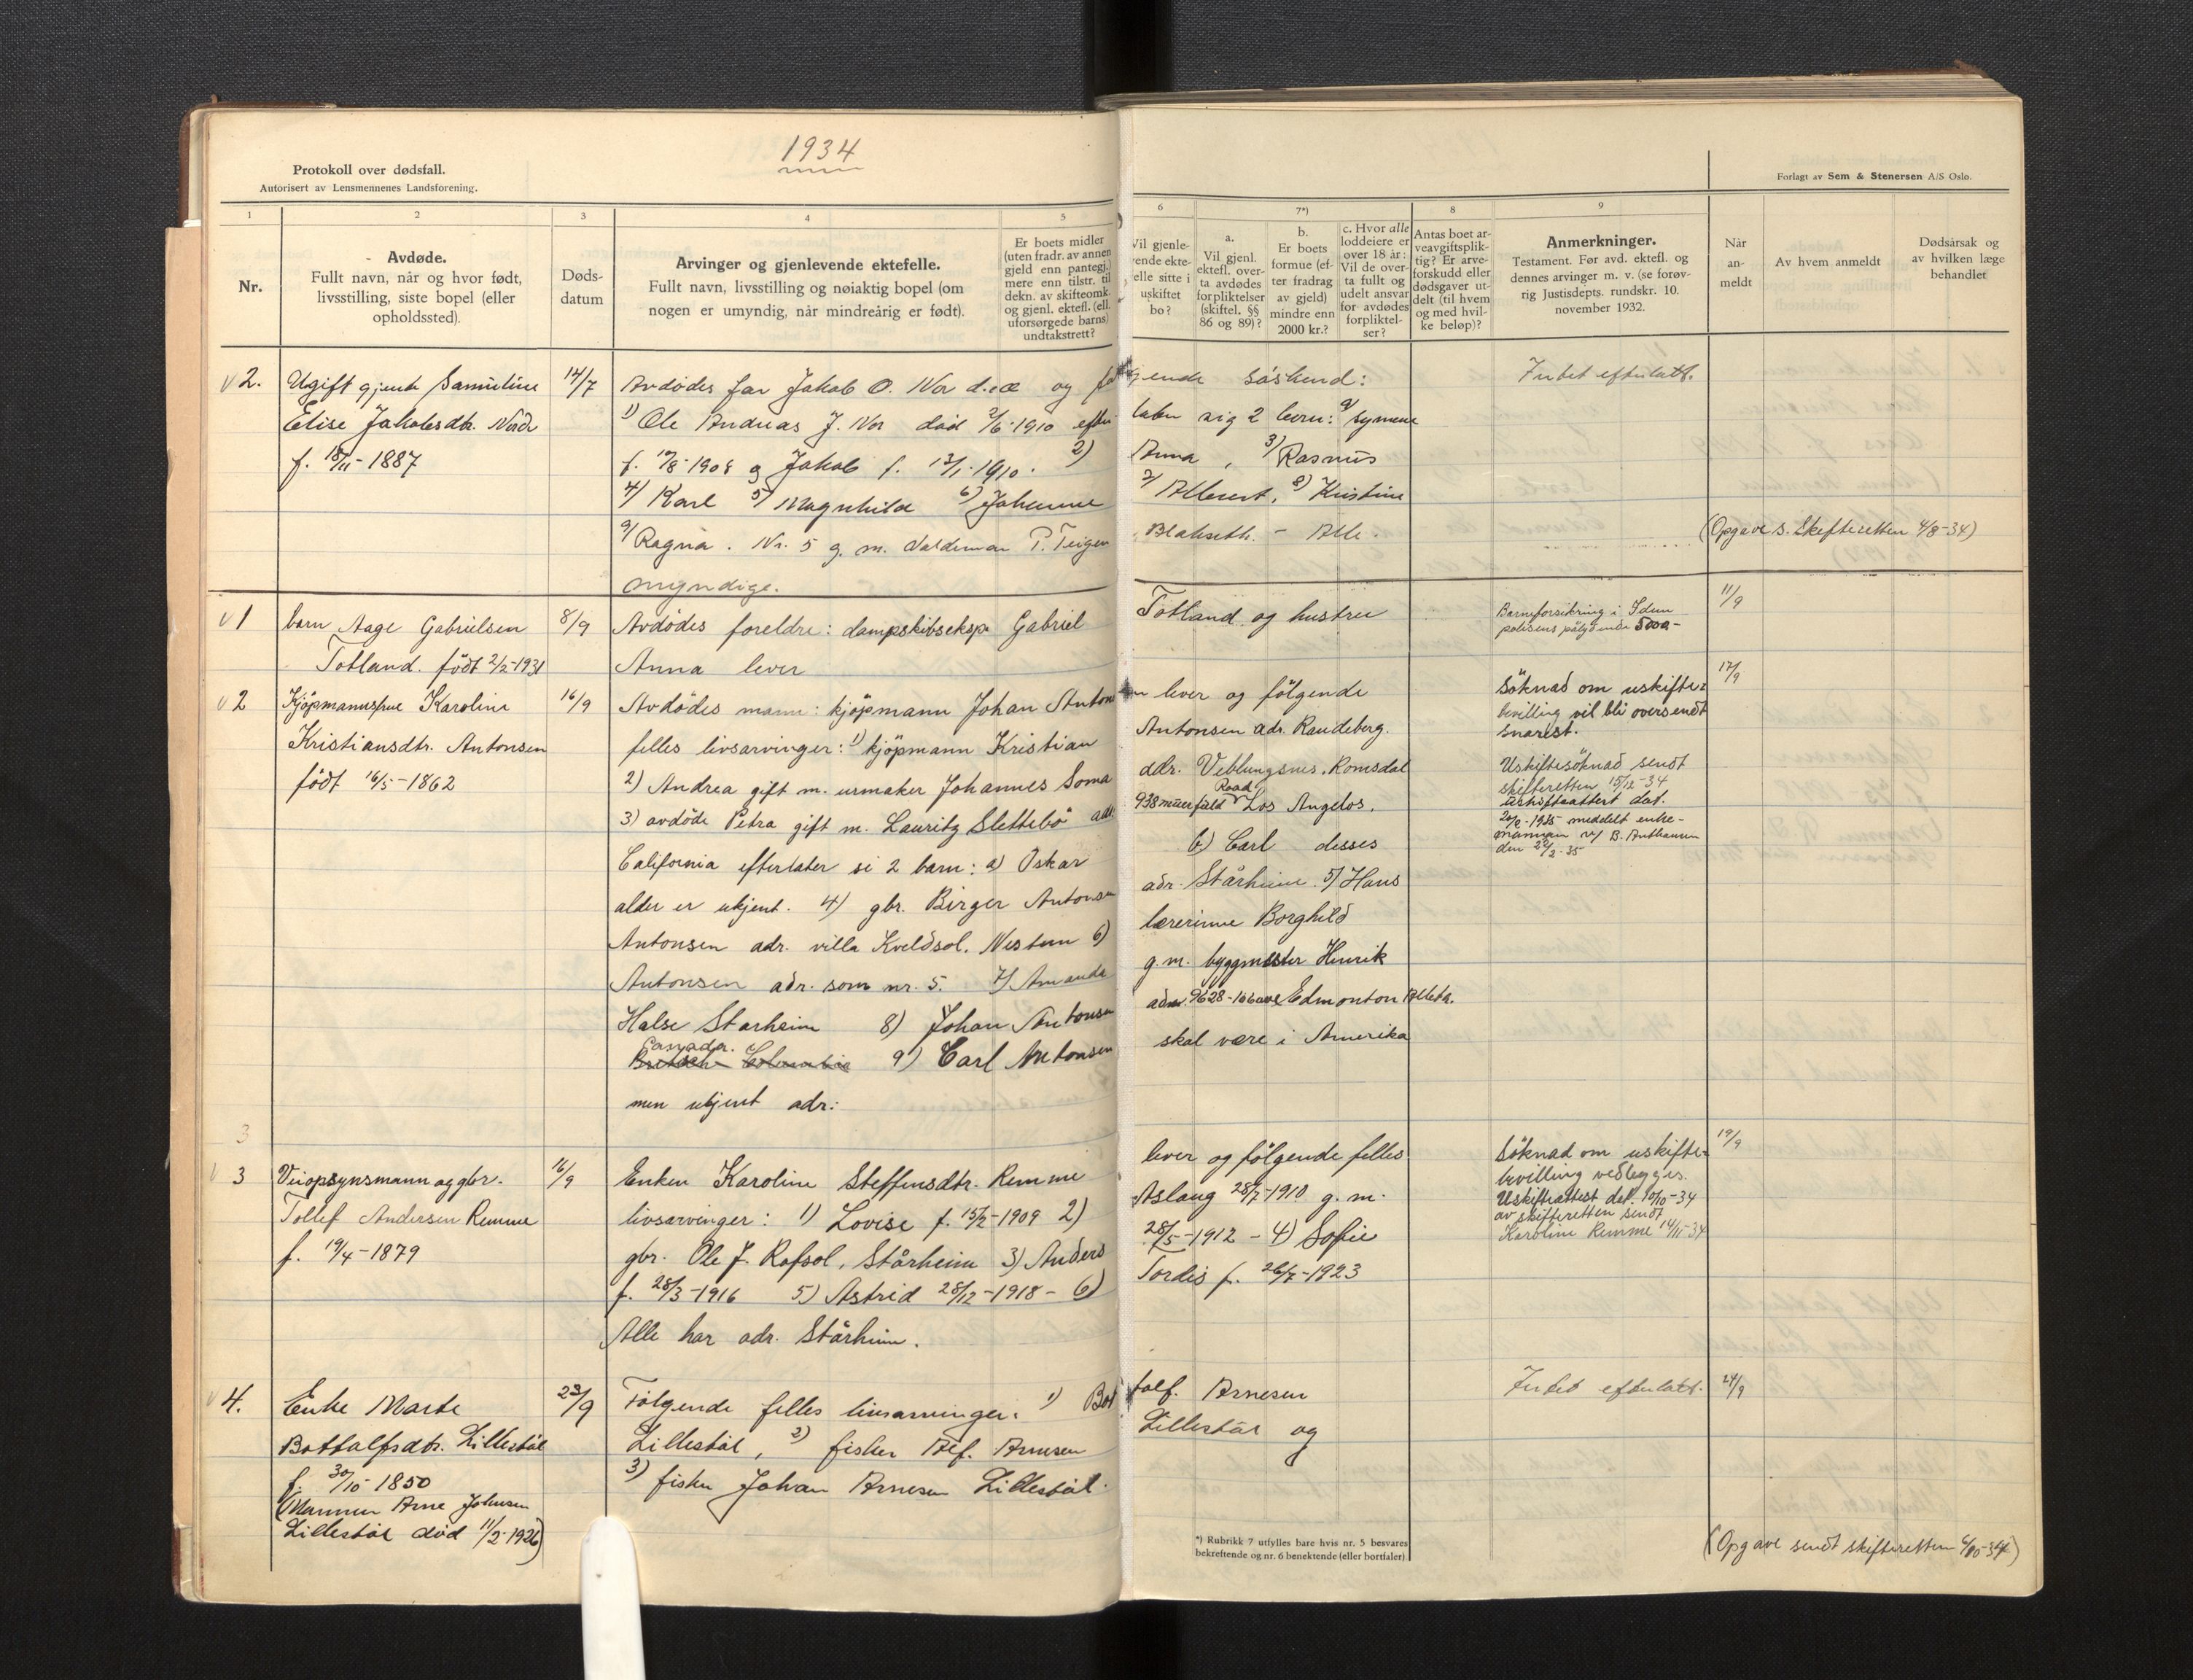 1934
Protokoll over dødsfall.
Autorisert av Lensmennenes Landsforening.
Forlagt av Sem & Stenersen A/S Oslo.
1
2
3
4
5
6
7*)
8
9
Nr.
Avdøde.
Fullt navn, når og hvor født,
livsstilling, siste bopel (eller
opholdssted).
Døds-
datum
Arvinger og gjenlevende ektefelle.
Fullt navn, livsstilling og nøiaktig bopel (om
nogen er umyndig, når mindreårig er født).
Er boets midler
(uten fradr. av annen
gjeld enn pantegj.)
mere enn tilstr. til
dekn. av skifteomk.
og gjenl. ektef. (ell.
uforsørgede barns)
undtakstrett?
Vil gjenle-
vende ekte-
elle sitte i
uskiftet
bo?
a.
Vil gjenl.
ektefl. over-
ta avdødes
forpliktelser
(skiftel. §§
86 og 89)?
b.
Er boets
formue (ef-
ter fradrag
av gjeld)
mindre enn
2000 kr.?
c. Hvor alle
loddeiere er
over 18 år:
Vil de over-
ta fullt og
udelt ansvar
for avdødes
forpliktel-
ser?
Antas boet ar-
veavgiftsplik-
tig? Er arve-
forskudd eller
dødsgaver ut-
delt (til hvem
og med hvil-
ke beløp)?
Anmerkninger.
Testament. Før avd. ektefl. og
dennes arvinger m. v. (se forøv-
rig Justisdepts. rundskr. 10.
november 1932.
Når
an-
meldt
Av hvem anmeldt
Dødsårsak og
av hvilken læge
behandlet
2. Ugift gjente Samuline 14/7 Avdødes far Jakob O. Nor og gende søskend: Intet efterlatt.
Elise Jakobsdtr. 1) Ole Andreas J. Nor død 2/6-1910 efter later sig 2 børn:
f. 18/11-1887 og Jakob f. 2) Anna, 3) Rasmus
4) Karl 5) Magnhild 6) Johanne 7) Albert, 8) Kristine
9) Ragna. Nr. 5 g. m. Valdemar P. Teigen - Alle
(Opgave s. Skifteretten 4/8-34)
myndige.
1 barn Aage Gabrielsen 8/9 Avdødes foreldre: dampskibseksp. Gabriel Totland og hustru Barneforsikring i Idun 11/9
polisens pålydende 500a-
Totland. født 2/2-1931 Anna lever
2 Kjøpmannsfrue Karoline 16/9 Avdødes mann: kjøpmann Johan Antonsen lever og følgende Søknad om uskifte- 17/9
bevilling vil bli oversendt
snarest.
Kristiansdtr. Antonsen felles livsarvinger: 1) kjøpmann Kristian Antonsen adr. Raudeberg.
født 16/5-1862 2) Andrea gift m. urmaker Johannes Soma adr. Veblungsnes, Romsdal Uskiftesøknad sendt
skifteretten 15/12-34
uskifteattest dat.
3) avdøde Petra gift m. Lauritz Slettebø adr. 938 Road Los Angelos,
meddelt enke-
mannen v/ B. Anthonsen
den 22/2-35
California efterlater si 2 barn: a) Oskar b) Carl desses
alder er ukjent. 4) gbr. Birger Antonsen adr. Stårheim 5) Hans
Antonsen adr. villa Kveldsol, Nestun 6) lærerinne Borghild
Antonsen adr. som nr. 5. 7) Amanda g.m. byggmester Henrik
Halse Starheim 8) Johan Antonsen adr. 9628-106 ave Edmonton Alberta.
Canada. British Columbia 9) Carl Antonsen skal være i Amerika
men ukjent adr:
3
3 Veiopsynsmann og gbr. 16/9 Enken Karoline Steffensdtr. Remme lever og følgende felles Søknad om uskifte- 19/9
bevilling vedlegges.
Tollef Andersen Remme livsarvinger: 1) Lovise f. 15/2-1909 2) Aslaug 28/7-1910 g.m. Uskifteattest dat. 10/10-34
av skifteretten sendt
f. 19/4-1879 gbr. Ole J. Rafsol, Stårheim 3) Anders 28/5-1912 - 4) Sofie Karoline Remme 14/11-34
f. 28/3-1916 5) Astrid 28/12-1918 - 6) Tordis f. 26/7-1923
Alle har adr. Stårheim.
4. Enke Marte 23/9 Følgende felles livsarvinger: 1) Bottolf. Arnesen Intet efterlatt. 24/9
Bottolfsdtr. Lillestøl Lillestøl, 2) fisker Alf. Arnesen Lillestøl og
f. 30/10-1850 3) fisker Johan Arnesen Lillestøl.
(Mannen Arne Johnsen
Lillestøl død 11/2-1926)
*) Rubrikk 7 utfylles bare hvis nr. 5 besvares
bekreftende og nr. 6 benektende (eller bortfaler)
(Opgave sendt skifteretten 4/10-34)